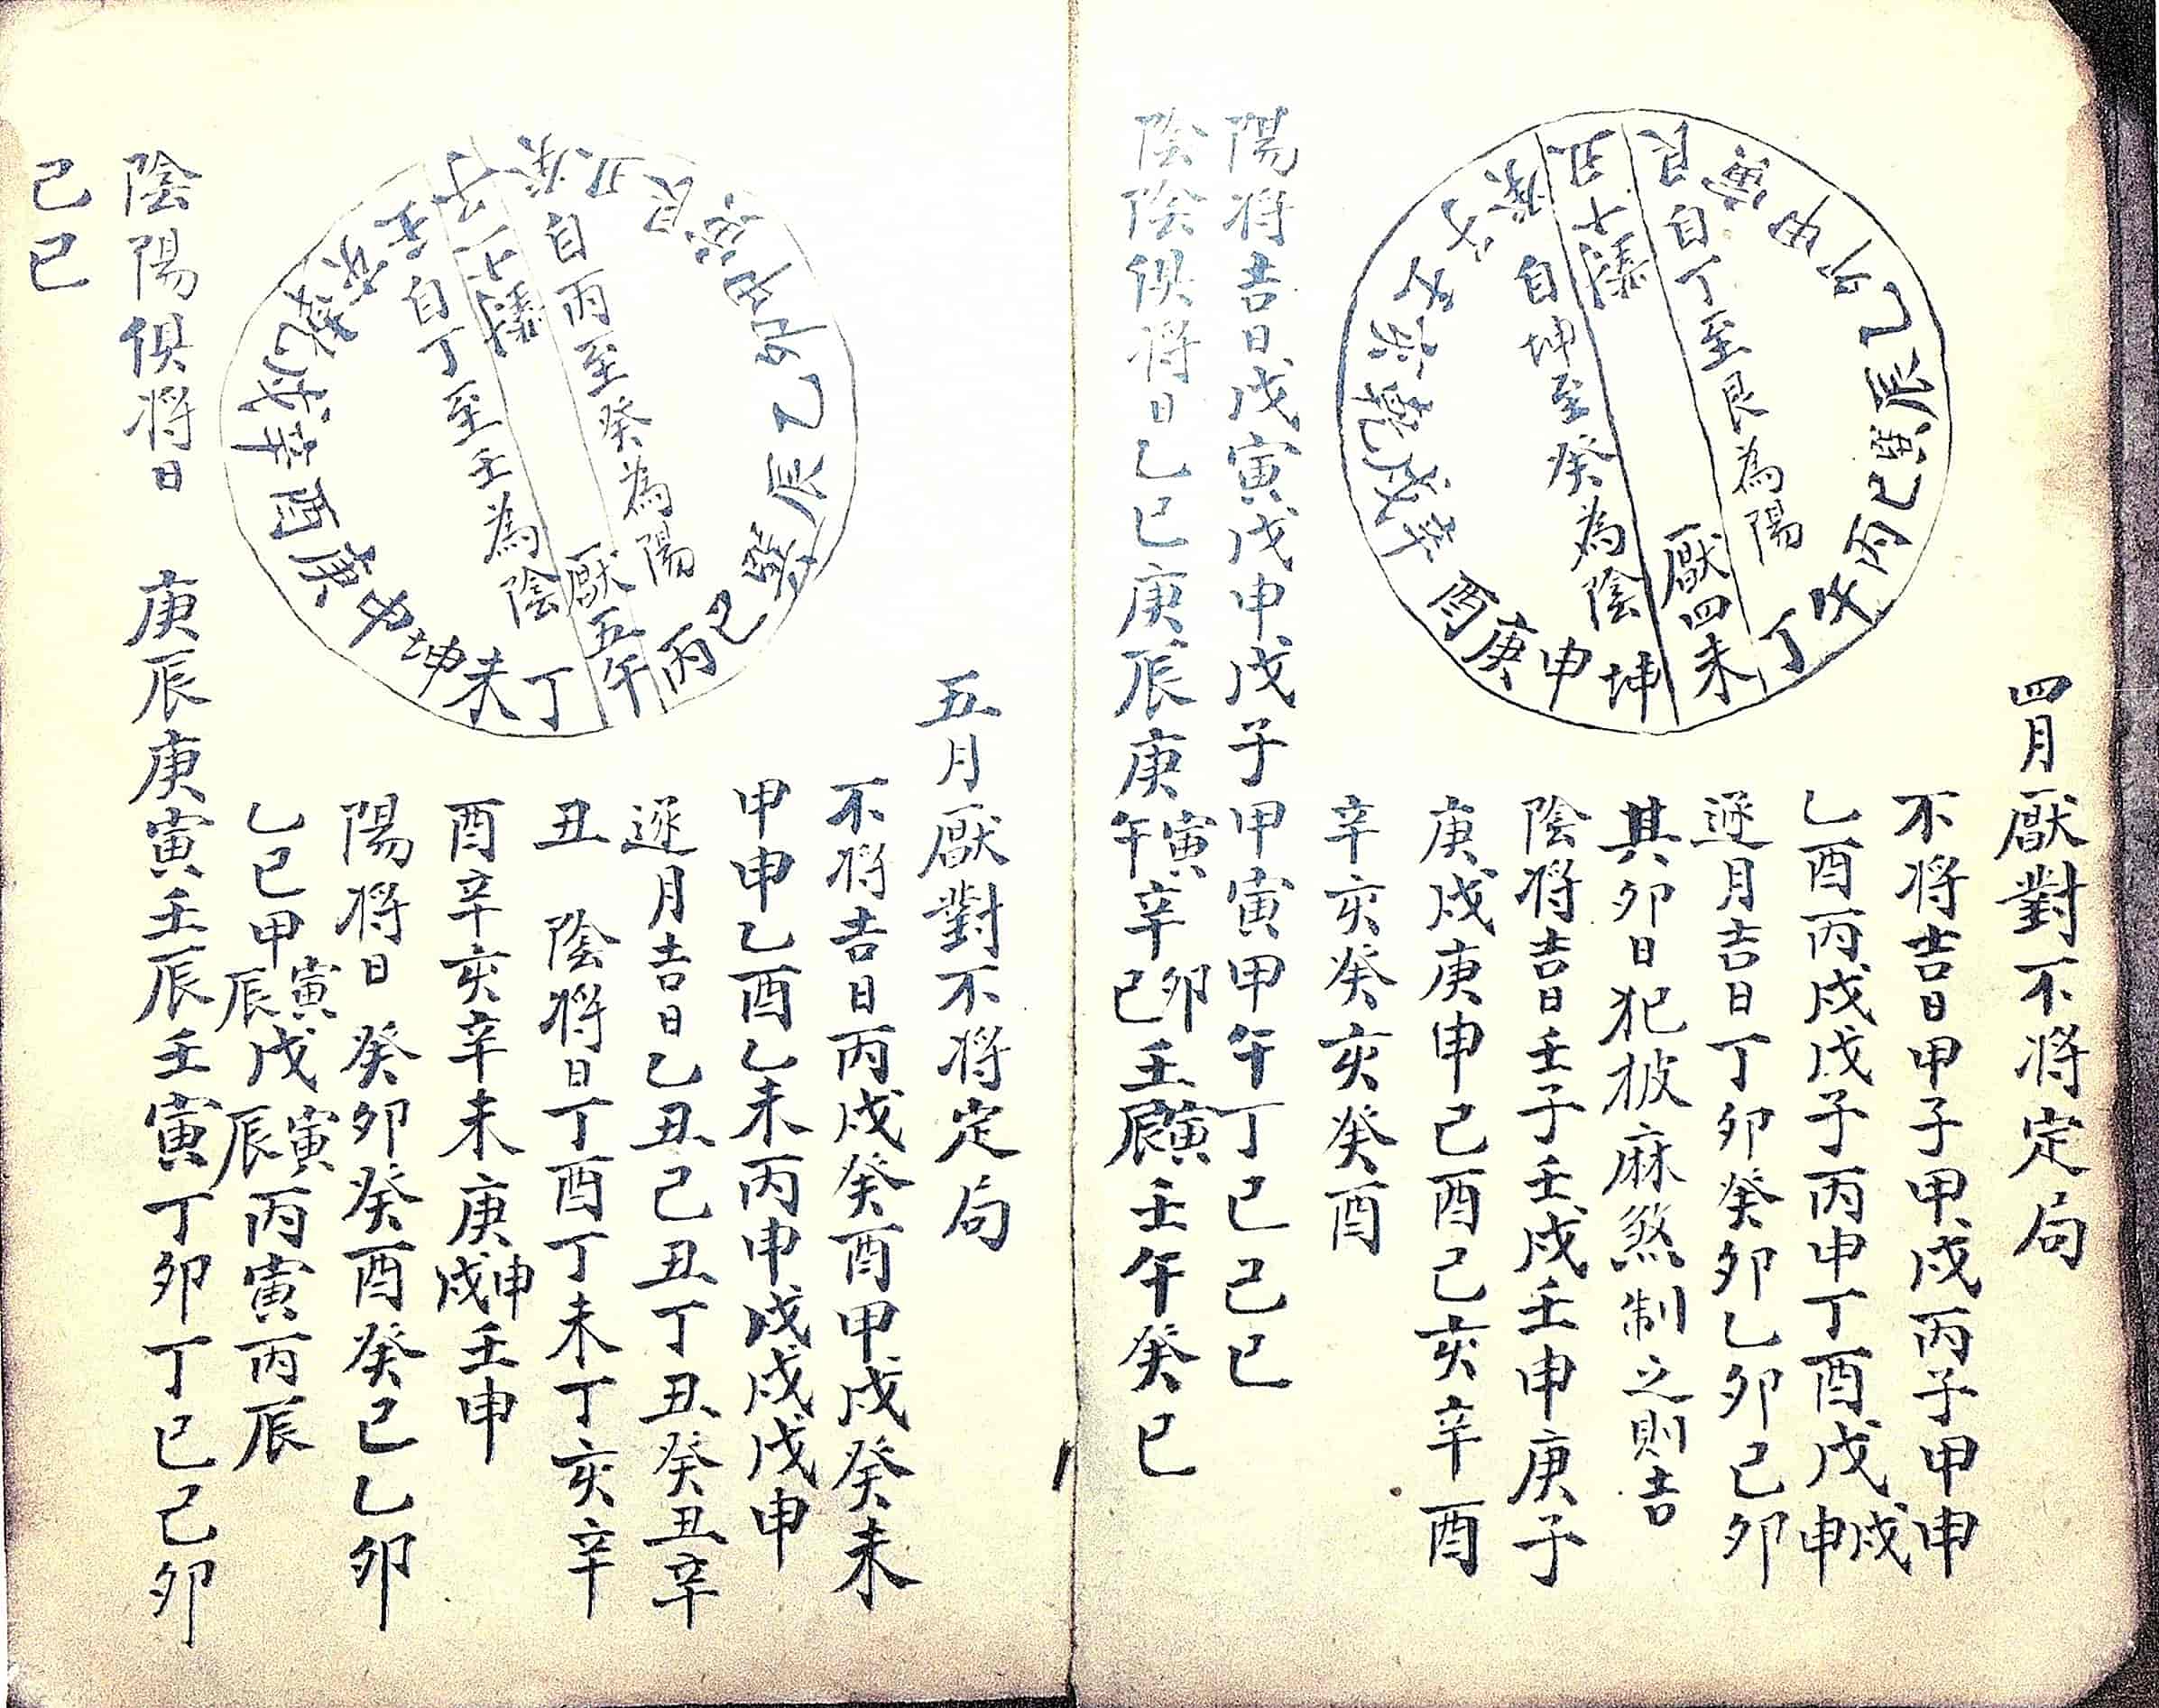 四月厭對不将定局
不将吉日甲子甲戍丙子甲申
乙酉丙戍戊子丙申丁酉戊戍申
逐月吉日丁卯癸卯乙卯己卯
其卯日犯披麻煞制之則吉
陰将吉日壬子壬戍壬申庚子
庚戍庚申己酉己亥辛酉
辛亥癸亥癸酉
陽将吉日戊寅戊申戊子甲寅甲午丁巳己巳
陰陰俱将日乙巳庚辰庚寅午辛卯巳壬寅辰壬午癸巳
艮寅甲卯乙辰巽巳丙丁
未坤申庚酉辛戍乾亥
癸丑
自丁至艮為陽
厭四
自坤至癸為陰
五月厭對不将定局
不将吉日丙戍癸酉甲戍癸未
甲申乙酉乙未丙申戊戍戊申
逐月吉日乙丑己丑丁丑癸丑辛
丑 陰将日丁酉丁未丁亥辛
酉辛亥辛未庚申戍壬申
陽将日癸卯癸酉癸巳乙卯
乙巳甲寅辰戊寅辰丙寅丙辰
陰陽俱将日 庚辰庚寅壬辰壬寅丁卯丁巳己卯
己巳
癸丑艮寅甲卯乙辰巽巳丙午
丁未坤申庚酉辛戍乾亥壬子
自丙至癸為陽
厭五
自丁至壬為陰